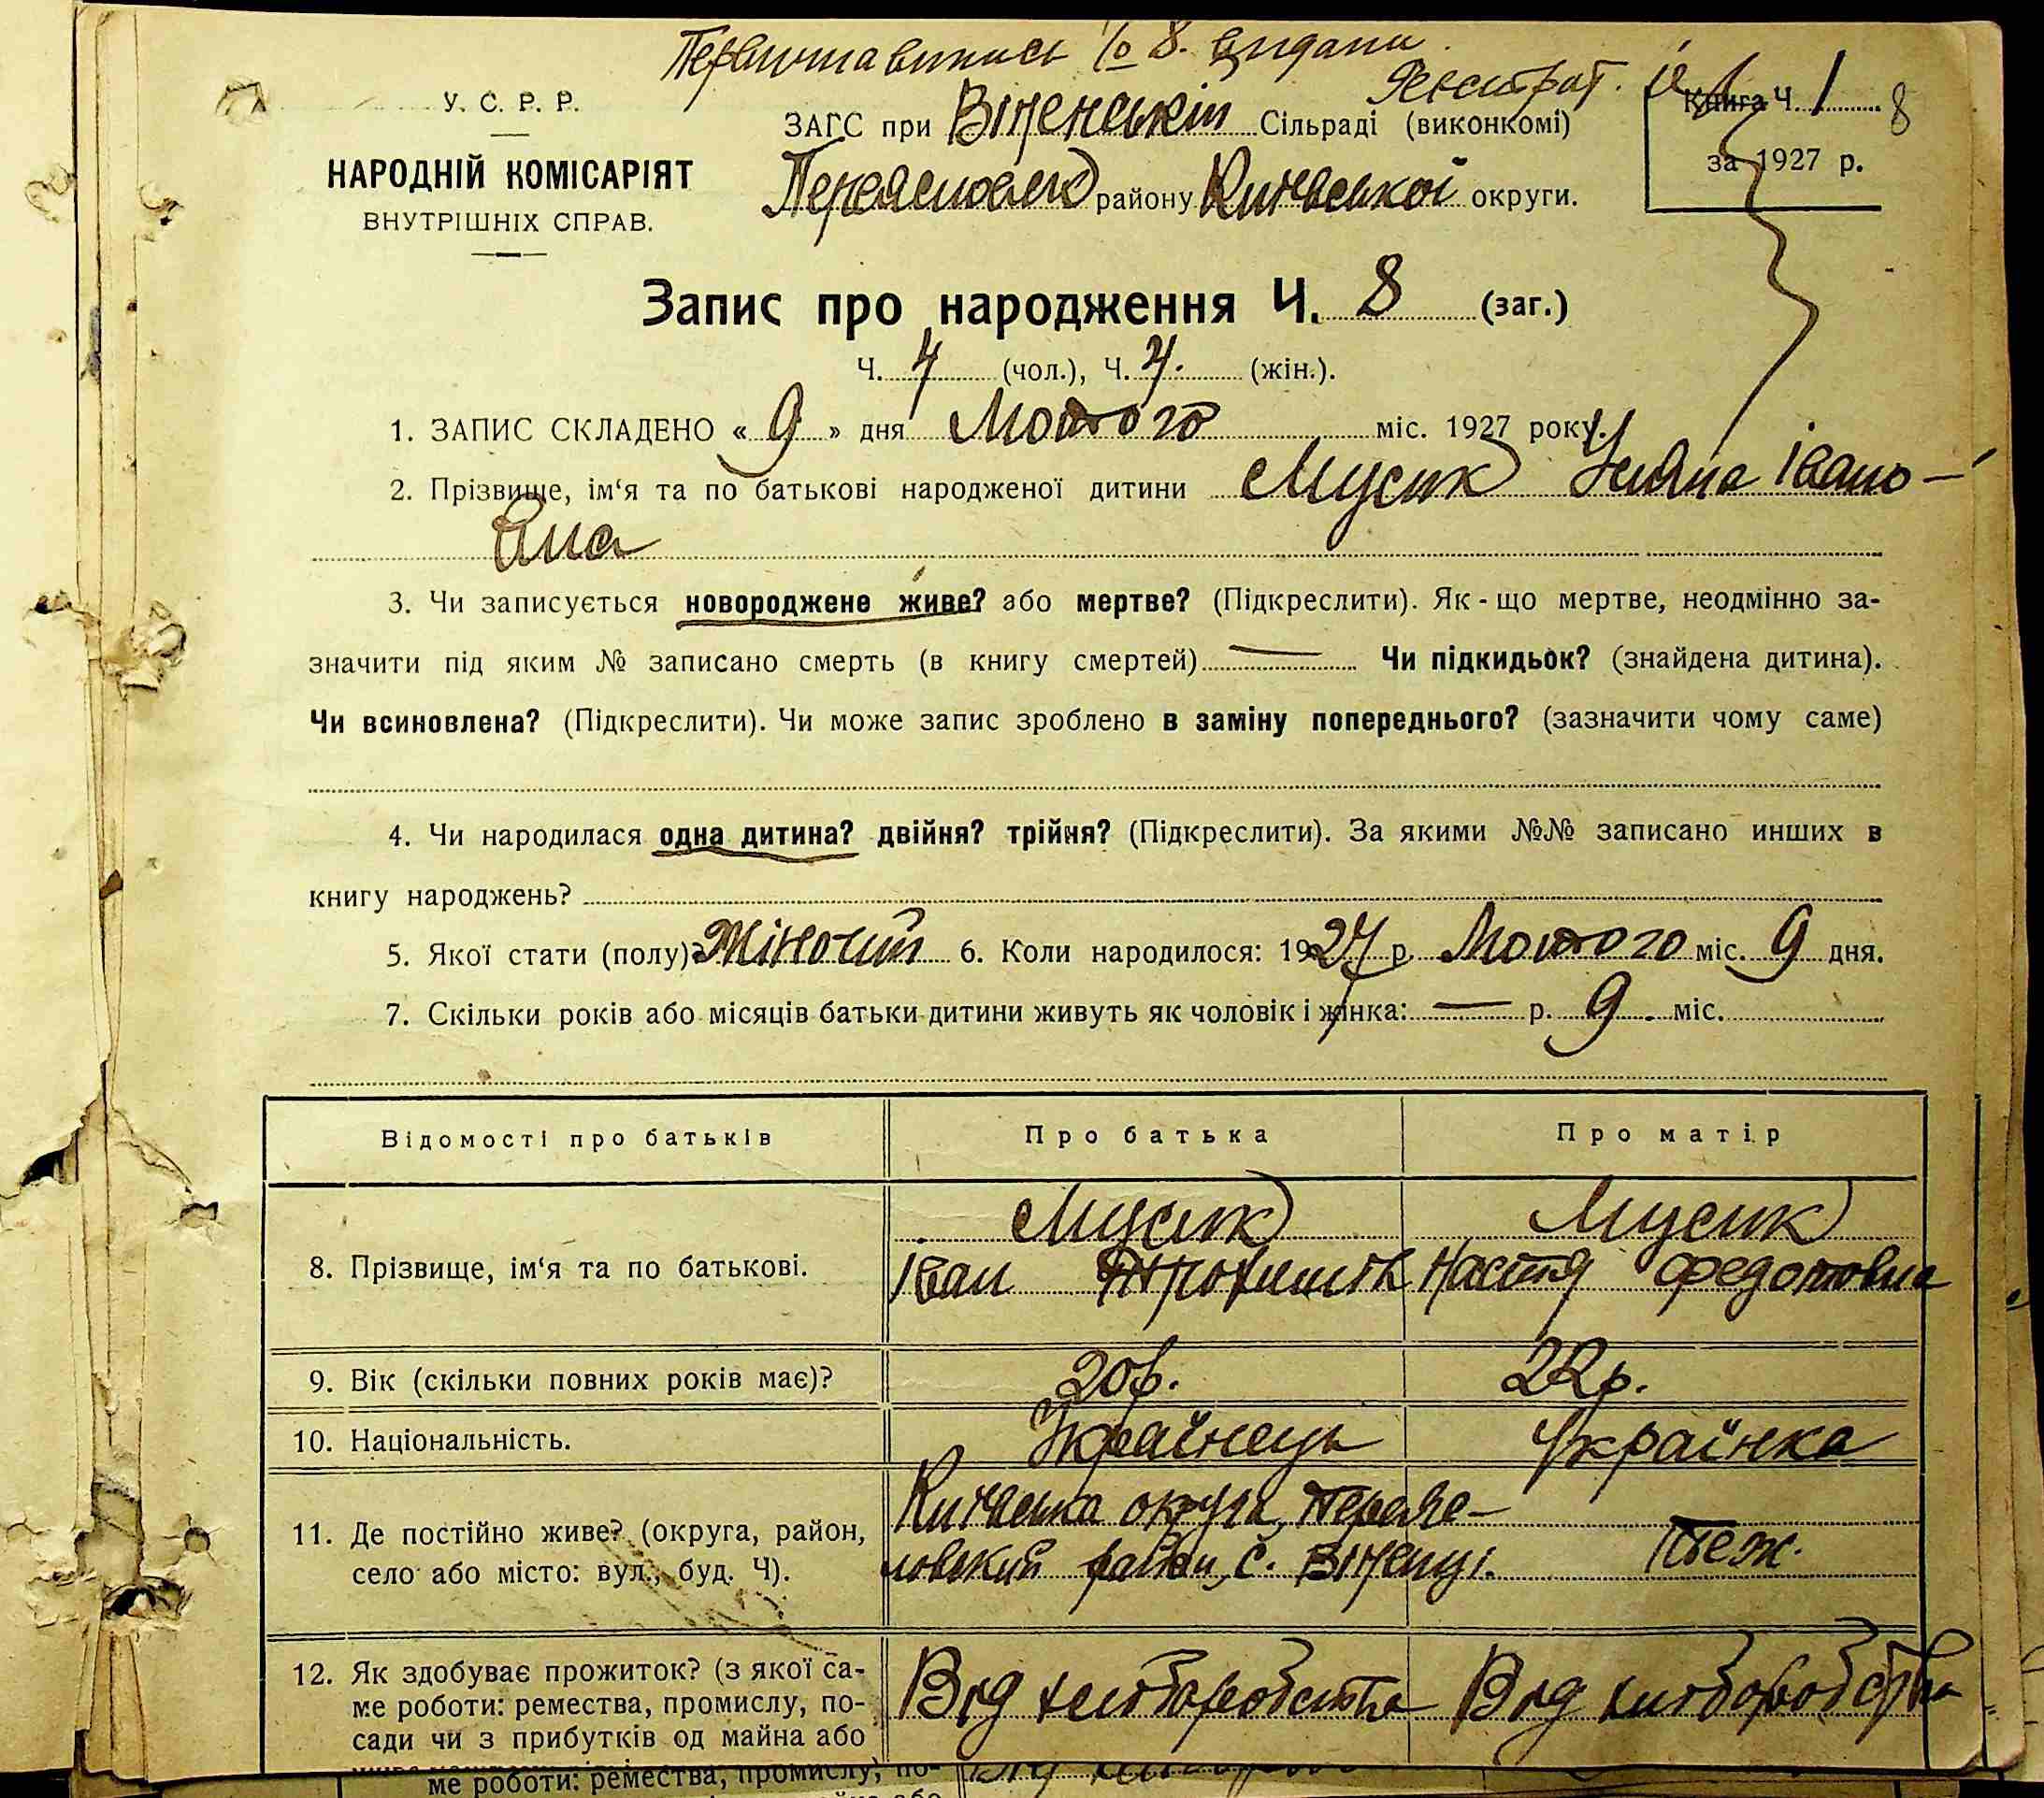 Первична випись № 8. видана
Реєстрат.
У. С. Р. Р.
НАРОДНІЙ КОМІСАРІЯТ
ВНУТРІШНІХ СПРАВ.
ЗАГС при Віненській Сільраді (виконкомі)
Переяславс району Київської округи.
Книга Ч. 1 8
за 1927 р.
Запис про народження Ч. 8 (заг.)
Ч. 4 (чол.), Ч. 4. (жін.).
1. ЗАПИС СКЛАДЕНО « 9 » дня Лютого міс. 1927 року.
2. Прізвище, ім‘я та по батькові народженої дитини Мусик Уляна Івано-
вна
3. Чи записується новороджене живе? або мертве? (Підкреслити). Як-що мертве, неодмінно за-
значити під яким № записано смерть (в книгу смертей) — Чи підкидьок? (знайдена дитина).
Чи всиновлена? (Підкреслити). Чи може запис зроблено в заміну попереднього? (зазначити чому саме)
4. Чи народилася одна дитина? двійня? трійня? (Підкреслити). За якими №№ записано инших в
книгу народжень?
5. Якої стати (полу)? Жіночий 6. Коли народилося: 1927 р. Лютого міс. 9 дня.
7. Скільки років або місяців батьки дитини живуть як чоловік і жінка: — р. 9 міс.
Відомості про батьків Про батька Про матір
Мусик Мусик
8. Прізвище, ім‘я та по батькові. Іван Настя Федотовна
9. Вік (скільки повних років має)? 20р. 22р.
10. Національність. Українець Українка
Київська округа, Переяс-
11. Де постійно живе? (округа, район, Теж.
село або місто: вул., буд. Ч). ловський район, с. Віненці.
12. Як здобуває прожиток? (з якої са-
ме роботи: ремества, промислу, по- Від хліборобства Від хліборобства
сади чи з прибутків од майна або
ме роботи: ремества, промислу, по-